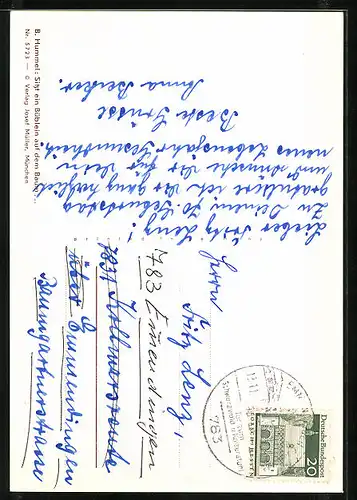 B. Hummel: Sitzt ein Büblein auf dem Baum, ...
Nr. 5723 — © Verlag Josef Müller, München
Lieber Fritz Lenz!
Zu Deinem 70. Geburtstag
gratuliere ich Dir ganz herzlich
und wünsche Dir für Dein
neues Lebensjahr Gesundheit.
Beste Grüsse
Anna Becker.
Herrn
Fritz Lenz,
783 Emmendingen
7831 Kollmarsreute
über Emmendingen
Baumgartnerstrasse
783
Deutsche Bundespost
20